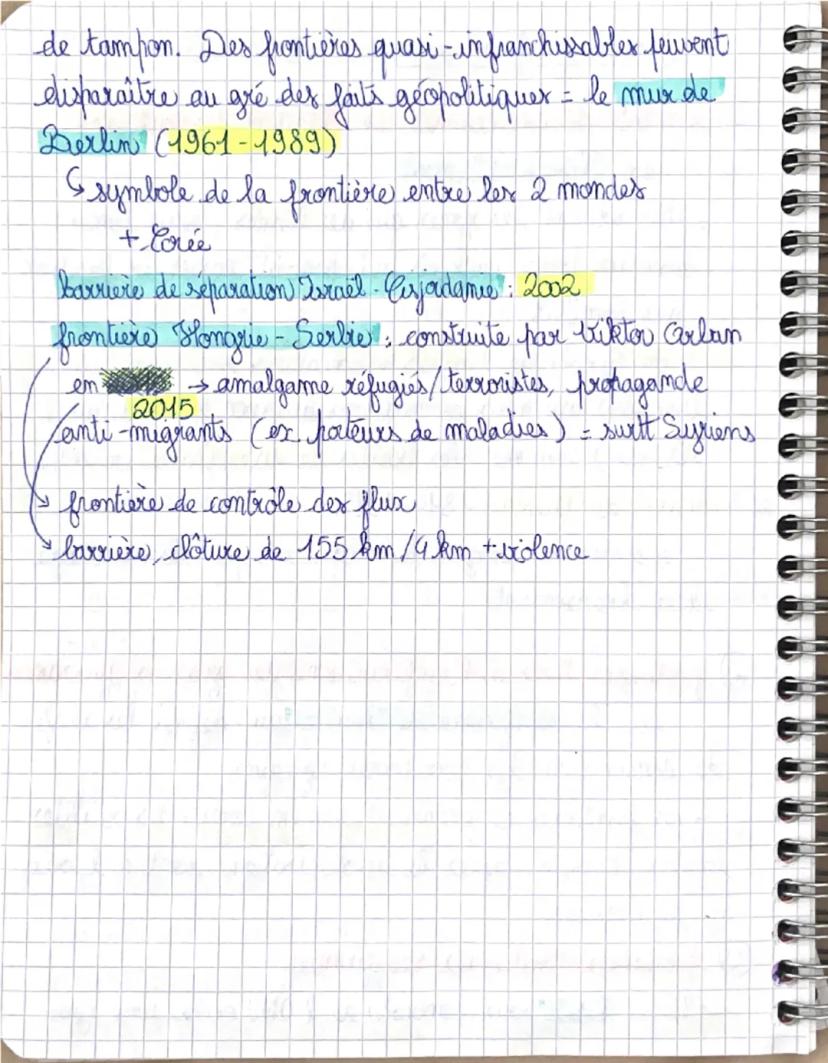 de tampon. Des frontières quasi-infranchissables peuvent
disparaître au gré des faits géopolitiques = le mur de
Berlin (1961-1989)
↳ symbole de la frontière entre les 2 mondes
+ Corée
barrière de séparation Israël-Cisjordanie : 2002
frontière Hongrie-Serbie : construite par Viktor Orban
en → amalgame réfugiés/terroristes, propagande
2015
anti-migrants (ex. porteurs de maladies) = surtt Syriens
↳ frontière de contrôle des flux
↳ barrière, clôture de 155 km/4 km + violence